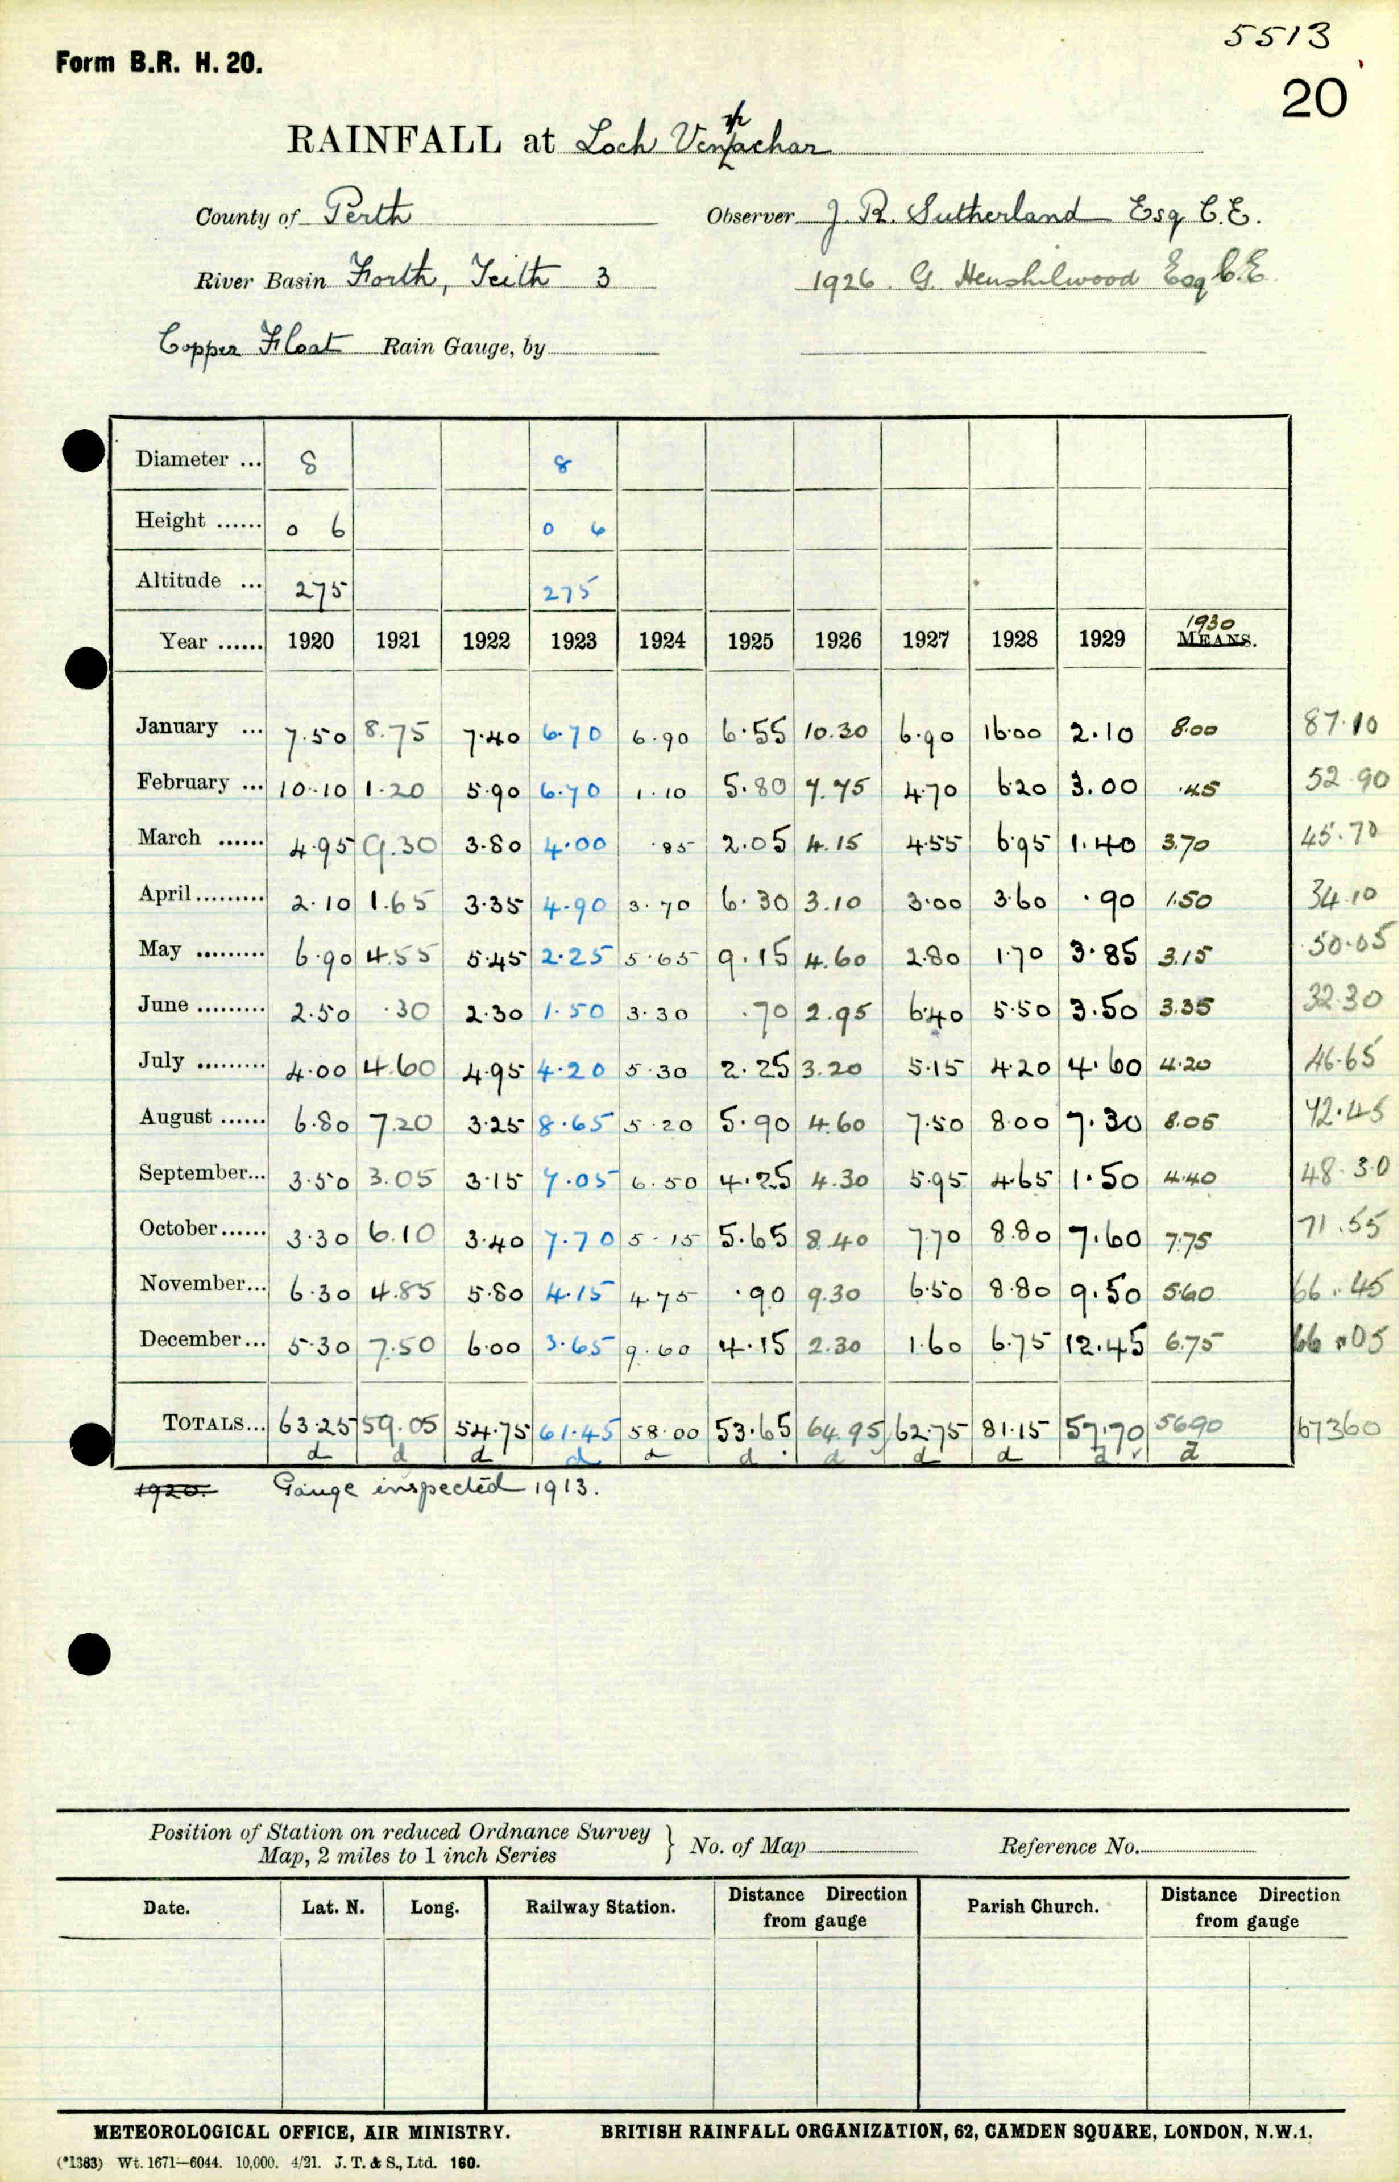 5513
Form B.R. H. 20.
20
RAINFALL at Loch Venachar
County of Perth Observer J. R. Sutherland Esq C.E.
River Basin Forth, Teith 3 1926. G. Henshilwood Esq C.E.
Copper Float Rain Gauge, by
Diameter ... 8 8
Height ...... 0 6 0 6
Altitude ... 275 275
1930
Year ...... 1920 1921 1922 1923 1924 1925 1926 1927 1928 1929 MEANS.
January ... 7.50 8.75 7.40 6.70 6.90 6.55 10.30 6.90 16.00 2.10 8.00 87.10
February ... 10.10 1.20 5.90 6.70 1.10 5.80 7.75 4.70 6.20 3.00 .45 52.90
March ...... 4.95 9.30 3.80 4.00 .85 2.05 4.15 4.55 6.95 1.40 3.70 45.70
April ......... 2.10 1.65 3.35 4.90 3.70 6.30 3.10 3.00 3.60 .90 1.50 34.10
May ......... 6.90 4.55 5.45 2.25 5.65 9.15 4.60 2.80 1.70 3.85 3.15 50.05
June ......... 2.50 .30 2.30 1.50 3.30 .70 2.95 6.40 5.50 3.50 3.35 32.30
July ......... 4.00 4.60 4.95 4.20 5.30 2.25 3.20 5.15 4.20 4.60 4.20 46.65
August ...... 6.80 7.20 3.25 8.65 5.20 5.90 4.60 7.50 8.00 7.30 8.05 72.45
September... 3.50 3.05 3.15 7.05 6.50 4.25 4.30 5.95 4.65 1.50 4.40 48.30
October...... 3.30 6.10 3.40 7.70 5.15 5.65 8.40 7.70 8.80 7.60 7.75 71.55
November... 6.30 4.85 5.80 4.15 4.75 .90 9.30 6.50 8.80 9.50 5.60 66.45
December... 5.30 7.50 6.00 3.65 9.60 4.15 2.30 1.60 6.75 12.45 6.75 66.05
TOTALS... 63.25 59.05 54.75 61.45 58.00 53.65 64.95 62.75 81.15 57.70 56.90 67360
d d d d d d d d d d d
1920. Gauge inspected 1913.
Position of Station on reduced Ordnance Survey
Map, 2 miles to 1 inch Series } No. of Map Reference No.
Date. Lat. N. Long. Railway Station. Distance Direction from gauge Parish Church. Distance Direction from gauge
METEOROLOGICAL OFFICE, AIR MINISTRY. BRITISH RAINFALL ORGANIZATION, 62, CAMDEN SQUARE, LONDON, N.W.1.
(*1383) Wt. 1671—6044. 10,000. 4/21. J. T. & S., Ltd. 160.